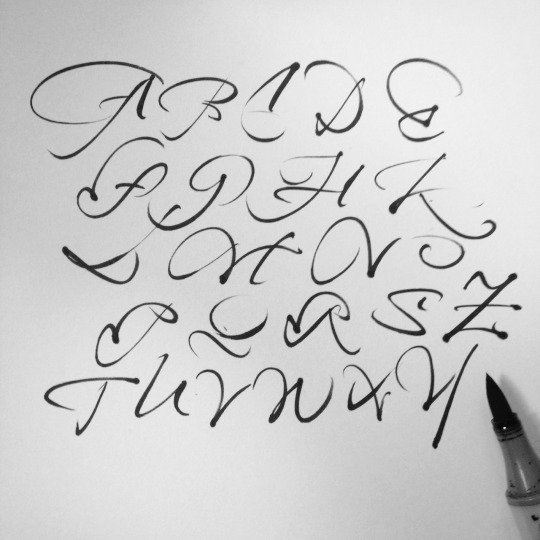 A B C D E
F G H K
L M N O
P Q R S Z
T U V W X Y